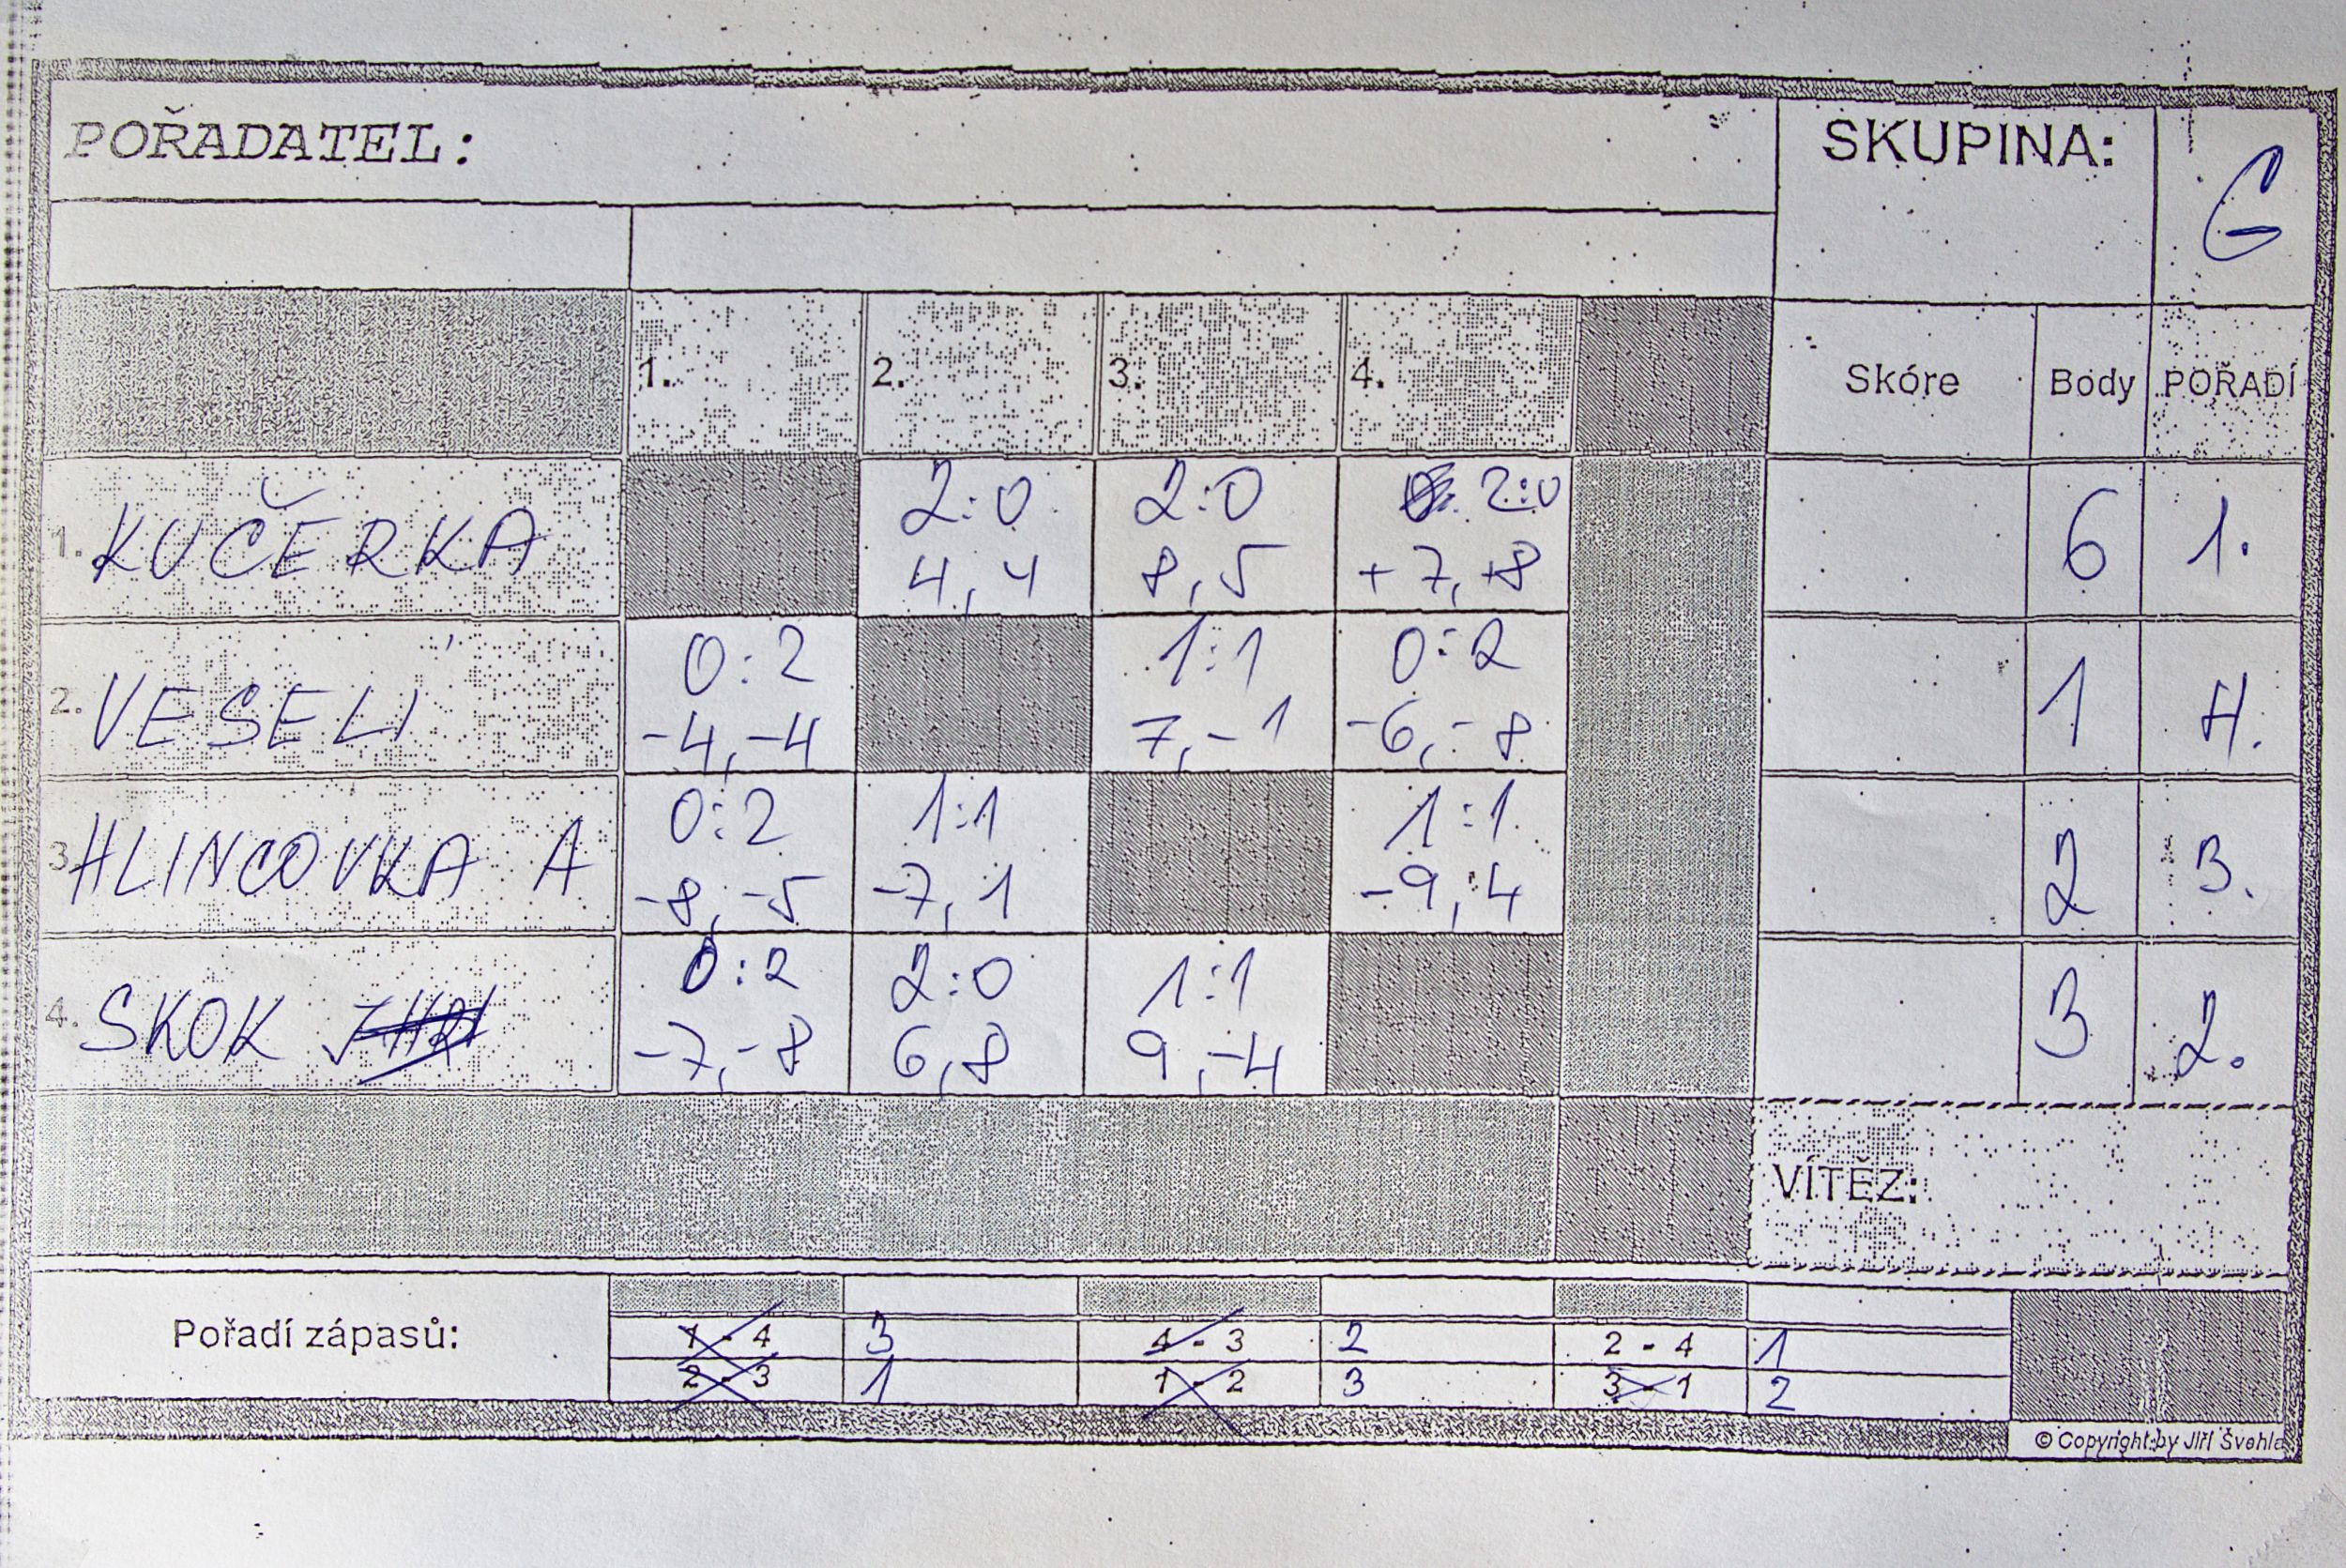 POŘADATEL:
SKUPINA: G
1. 2. 3. 4. Skóre Body POŘADÍ
1. KUČERKA 2:0 2:0 2:0 6 1.
4, 4 8, 5 +7, +8
2. VESELÍ 0:2 1:1 0:2 1 4.
-4, -4 7, -1 -6, -8
3. HLINCOVKA A 0:2 1:1 1:1 2 3.
-8, -5 -7, 1 -9, 4
4. SKOK 0:2 2:0 1:1 3 2.
-7, -8 6, 8 9, -4
VÍTĚZ:
Pořadí zápasů:
1 - 4 3 4 - 3 2 2 - 4 1
2 - 3 1 1 - 2 3 3 - 1 2
© Copyright by Jiří Švehla